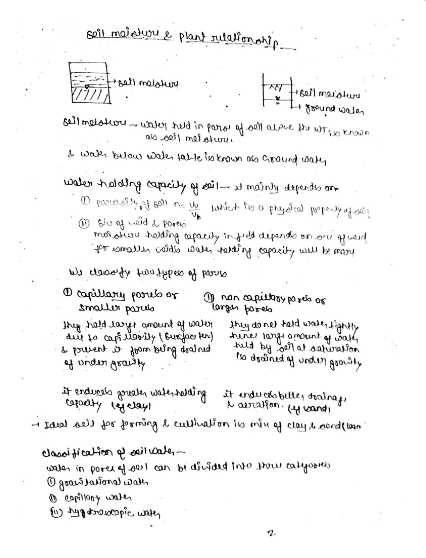 soil moisture & plant relationship
soil moisture
soil moisture
ground water
soil moisture — water held in pores of soil above the WT is known
as soil moisture.
& water below water table is known as Ground water
water holding capacity of soil — it mainly depends on
(i) porosity of soil n = Vv/V, which is a physical property of soil
(ii) size of void & pores
moisture holding capacity in field depends on size of void
for smaller voids water holding capacity will be more
We classify two types of pores
(i) capillary pores or
smaller pores
they hold large amount of water
due to capillarity (surface
& prevent it from being drained
of under gravity
it enduces greater water holding
capacity (eg clay)
(ii) non capillary pores or
larger pores
they do not hold water tightly
hence large amount of water
held by soil at saturation
is drained of under gravity
it enduces better drainage
& aeration. (eg sand)
→ Ideal soil for forming & cultivation is mix of clay & sand (loam
classification of soil water —
water in pores of soil can be divided into three categories
(i) gravitational water
(ii) capillary water
(iii) hygroscopic water
2